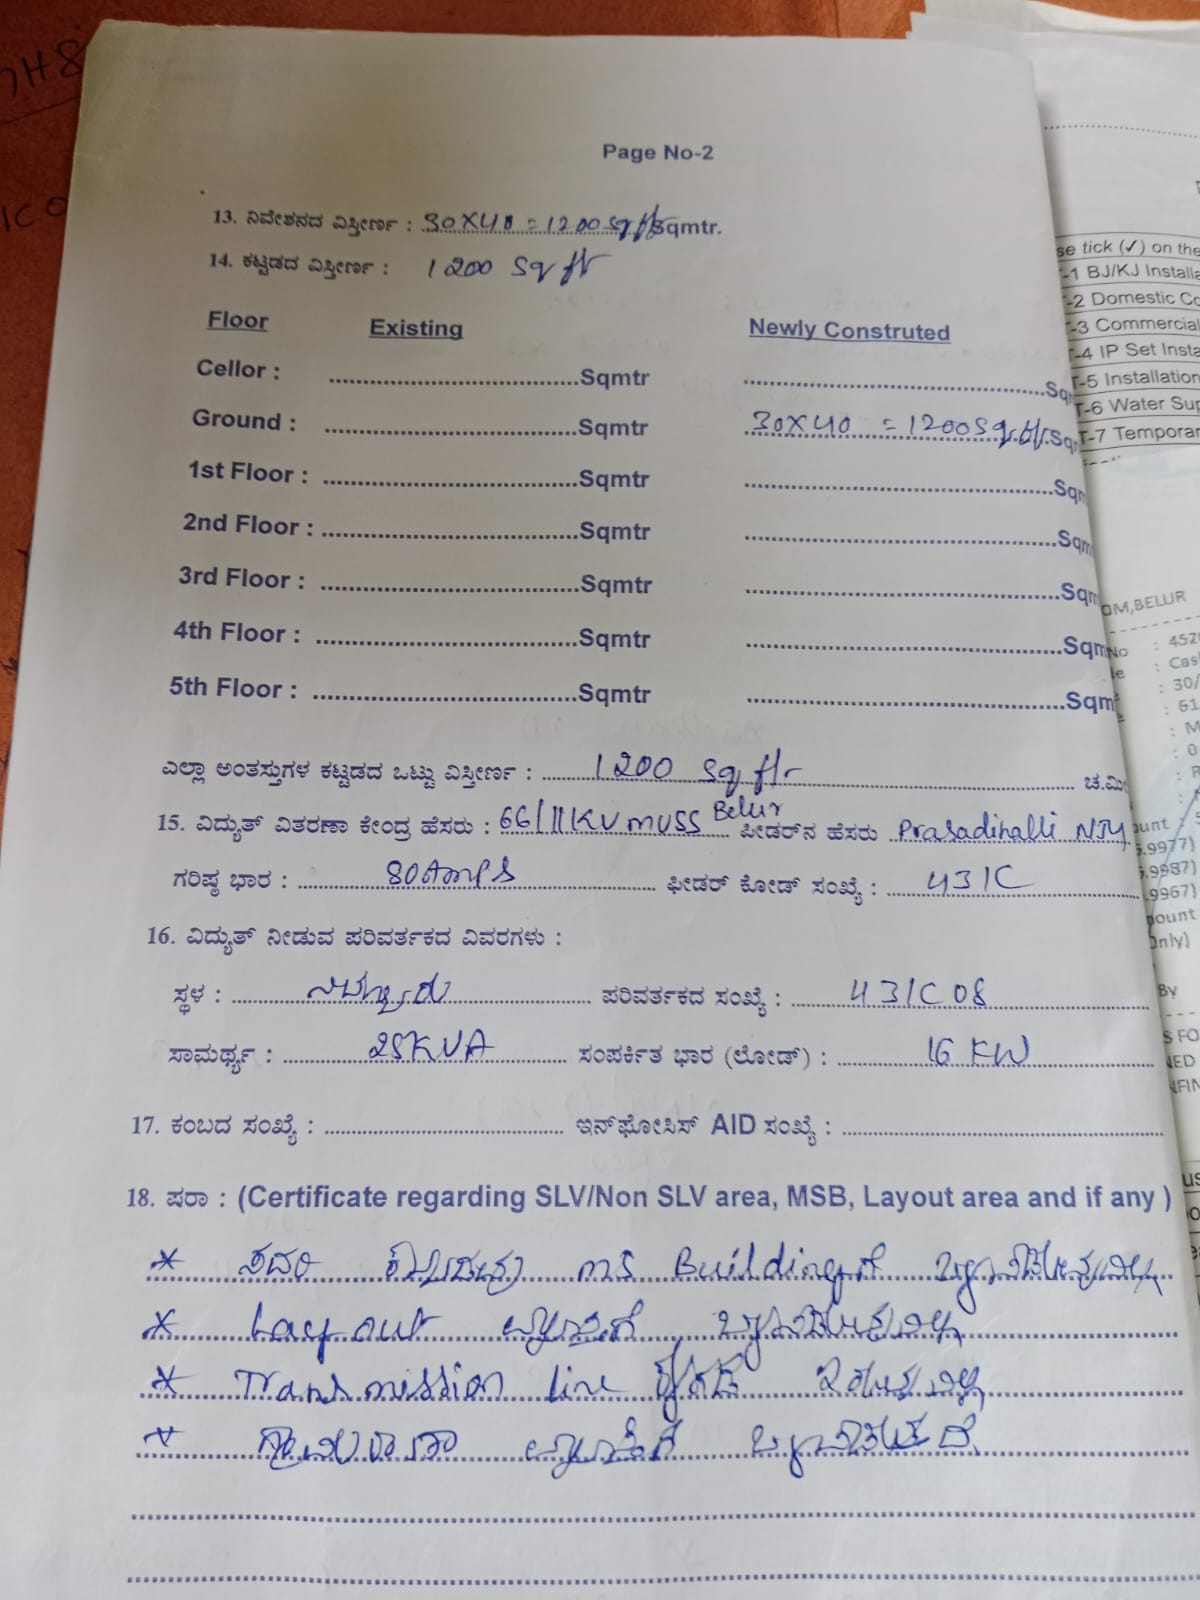 Page No-2
13. ನಿವೇಶನದ ವಿಸ್ತೀರ್ಣ : 30X40 = 1200 Sq ft Sqmtr.
14. ಕಟ್ಟಡದ ವಿಸ್ತೀರ್ಣ : 1200 Sq ft
Floor Existing Newly Construted
Cellor : ..............................Sqmtr ..............................Sq
Ground : ..............................Sqmtr 30X40 = 1200 Sq.ft.Sq
1st Floor : ..............................Sqmtr ..............................Sq
2nd Floor : ..............................Sqmtr ..............................Sqm
3rd Floor : ..............................Sqmtr ..............................Sqm
4th Floor : ..............................Sqmtr ..............................Sqm
5th Floor : ..............................Sqmtr ..............................Sqm
ಎಲ್ಲಾ ಅಂತಸ್ತುಗಳ ಕಟ್ಟಡದ ಒಟ್ಟು ವಿಸ್ತೀರ್ಣ : 1200 Sq ft ಚ.ಮೀ
15. ವಿದ್ಯುತ್ ವಿತರಣಾ ಕೇಂದ್ರ ಹೆಸರು : 66/11KV MUSS Belur ಫೀಡರ್‌ನ ಹೆಸರು Prasadihalli NJY
ಗರಿಷ್ಠ ಭಾರ : 80Amps ಫೀಡರ್ ಕೋಡ್ ಸಂಖ್ಯೆ : 431C
16. ವಿದ್ಯುತ್ ನೀಡುವ ಪರಿವರ್ತಕದ ವಿವರಗಳು :
ಸ್ಥಳ : ಪರಿವರ್ತಕದ ಸಂಖ್ಯೆ : 431C08
ಸಾಮರ್ಥ್ಯ : 25KVA ಸಂಪರ್ಕಿತ ಭಾರ (ಲೋಡ್) : 16 KW
17. ಕಂಬದ ಸಂಖ್ಯೆ : .............................. ಇನ್‌ಫೋಸಿಸ್ AID ಸಂಖ್ಯೆ : ..............................
18. ಷರಾ : (Certificate regarding SLV/Non SLV area, MSB, Layout area and if any )
* ಸದರಿ ಕಟ್ಟಡವು MS Buildingಗೆ
* Layout ವ್ಯಾಪ್ತಿಗೆ
* Transmission line ಕೆಳಗಡೆ
* ವ್ಯಾಪ್ತಿಗೆ
se tick (✓) on the
-1 BJ/KJ Installa
-2 Domestic Co
-3 Commercial
T-4 IP Set Insta
T-5 Installation
T-6 Water Sup
T-7 Temporar
OM,BELUR
No : 452
: Cas
: 30/
: 61
: M
: 0
: R
ount : 5
5.9977)
.9987)
.9967)
ount
Only)
By
S FO
NED
NFIN
7H8
1C0